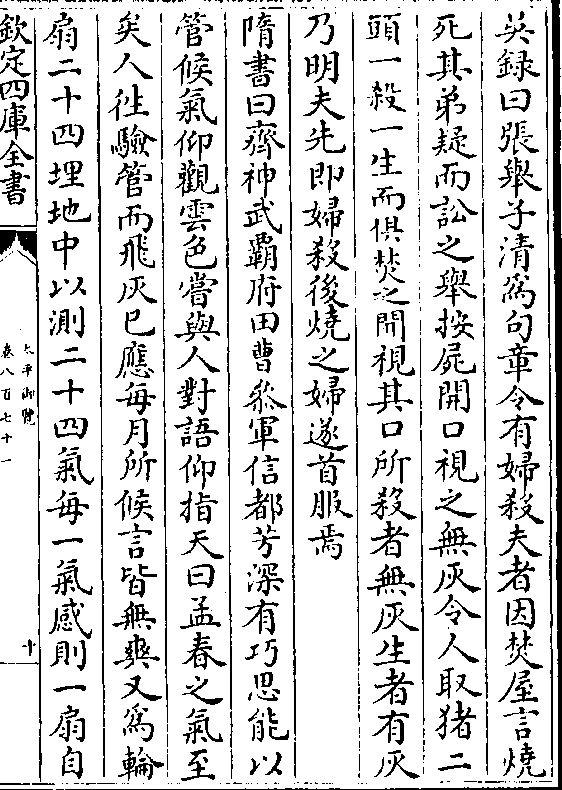 英録曰張舉子清為句章令有婦殺夫者因焚屋言燒
死其弟疑而訟之舉按屍開口視之無灰令人取猪二
頭一殺一生而俱焚之開視其口所殺者無灰生者有灰
乃明夫先即婦殺後燒之婦遂首服焉
隋書曰齊神武霸府田曹叅軍信都芳深有巧思能以
管候氣仰觀雲色嘗與人對語仰指天曰孟春之氣至
矣人徃驗管而飛灰已應每月所候言皆無爽又為輪
扇二十四埋地中以測二十四氣每一氣感則一扇自
欽定四庫全書
太平御覽
卷八百七十一
十